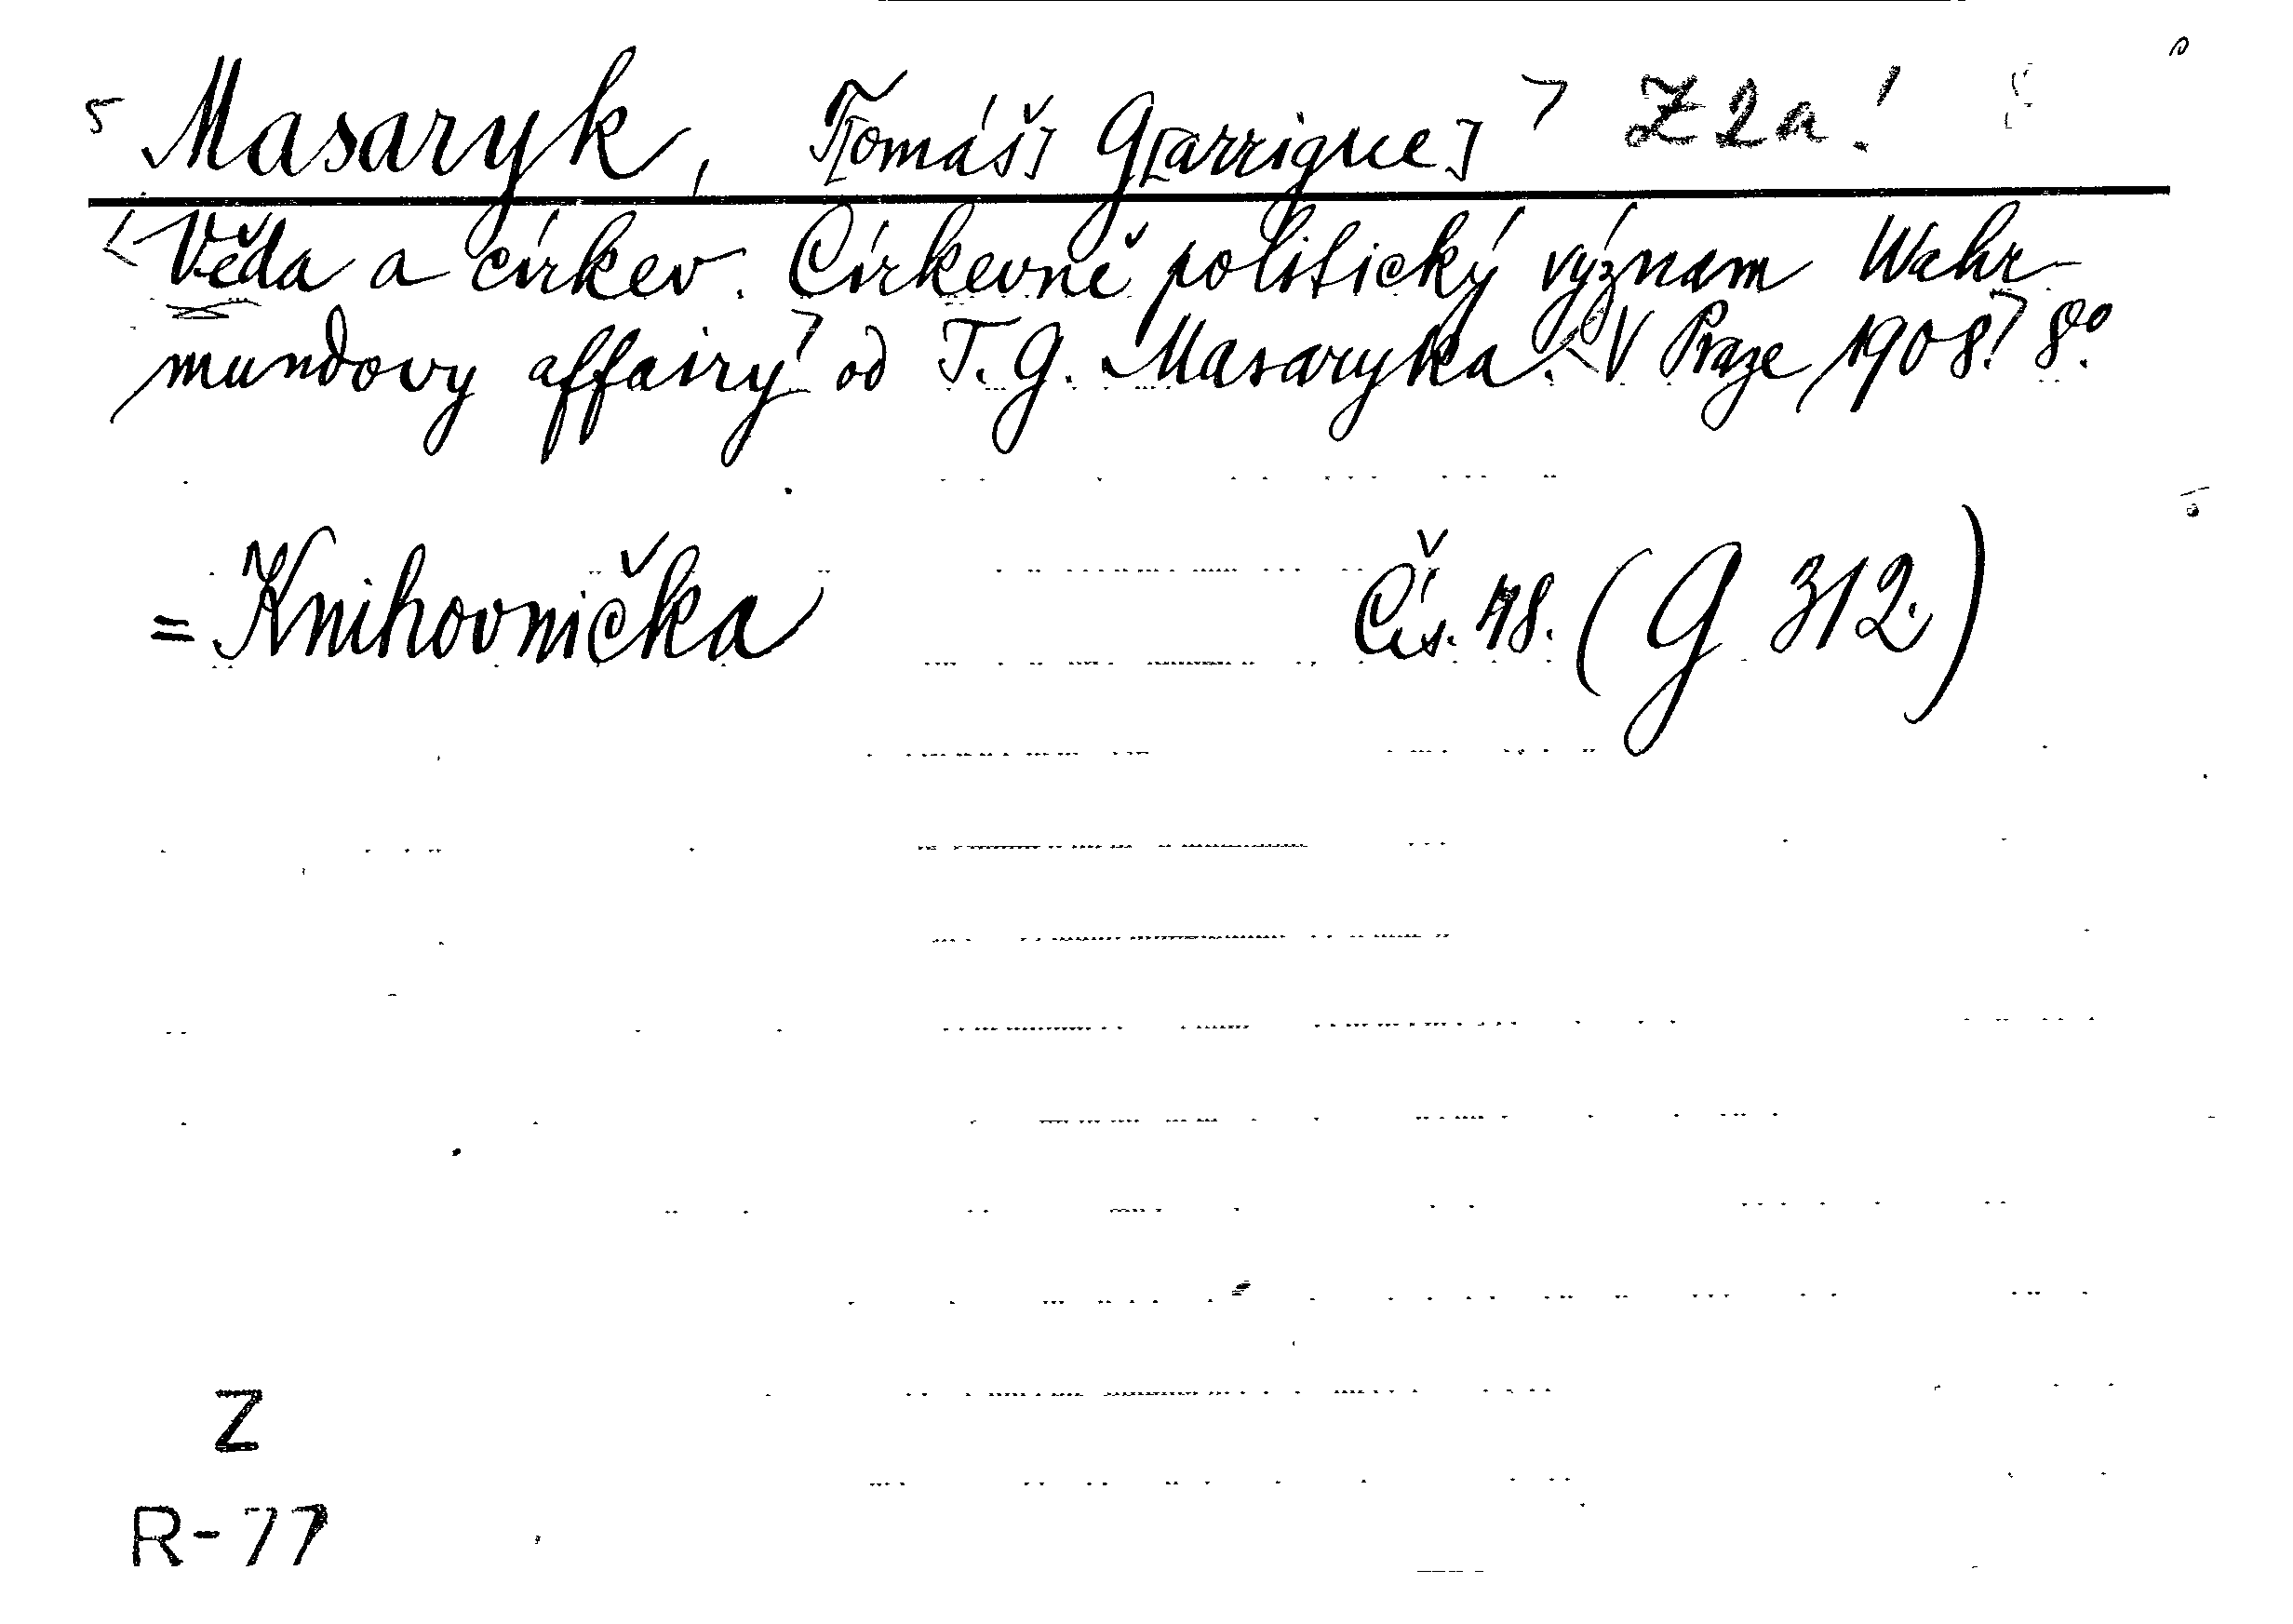 Masaryk, T[omáš] G[arrigue] Z 2a!
Věda a církev. Církevně politický význam Wahr-
mundovy affairy od T. G. Masaryka. V Praze 1908. 8º.
= Knihovnička Čís. 48. (G 312.)
Z
R-77